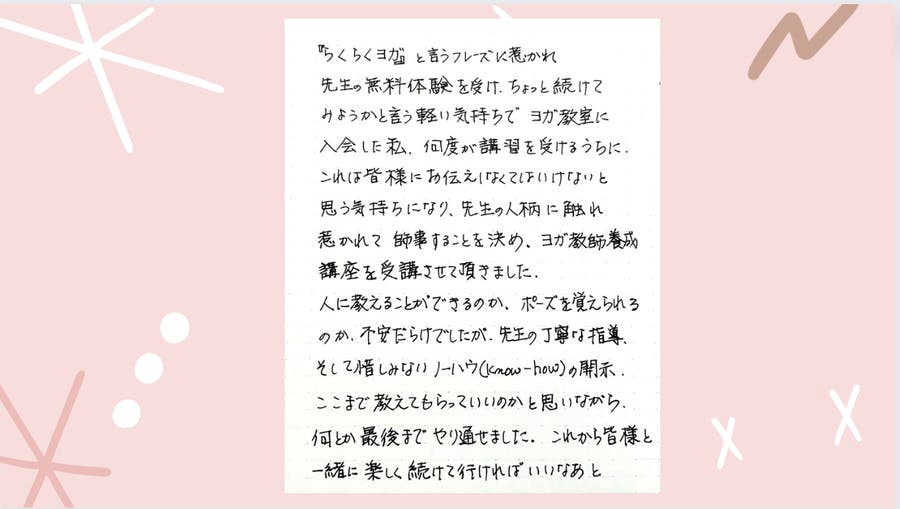 『らくらくヨガ』と言うフレーズに惹かれ
先生の無料体験を受け、ちょっと続けて
みようかと言う軽い気持ちで ヨガ教室に
入会した私、何度か講習を受けるうちに、
これは皆様にお伝えしなくてはいけないと
思う気持ちになり、先生の人柄に触れ
惹かれて 師事することを決め、ヨガ教師養成
講座を受講させて頂きました。
人に教えることができるのか、ポーズを覚えられる
のか、不安だらけでしたが、先生の丁寧な指導、
そして惜しみないノーハウ(know-how)の開示、
ここまで教えてもらっていいのかと思いながら、
何とか最後までやり通せました。これから皆様と
一緒に楽しく続けて行ければいいなあと